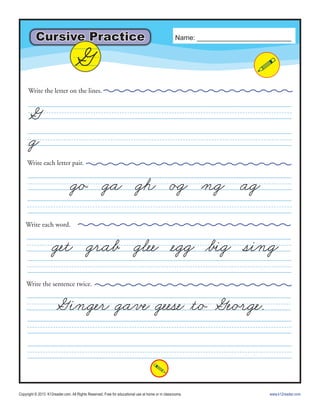 Cursive Practice
Name:
G
Write the letter on the lines.
G
g
Write each letter pair.
go ga gh og ng ag
Write each word.
get grab glee egg big sing
Write the sentence twice.
Ginger gave geese to George.
Copyright © 2013 K12reader.com. All Rights Reserved. Free for educational use at home or in classrooms. www.k12reader.com